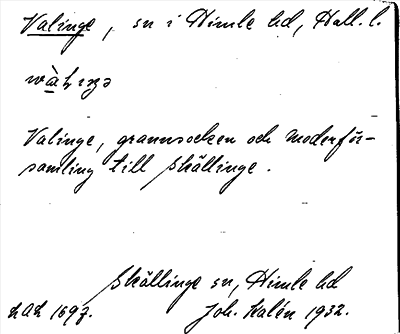 Valinge, sn i Himle hd, Hall. l.
Valinge, grannsocken och moderför-
samling till Skällinge.
Skällinge sn, Himle hd
Joh. Kalén 1932.